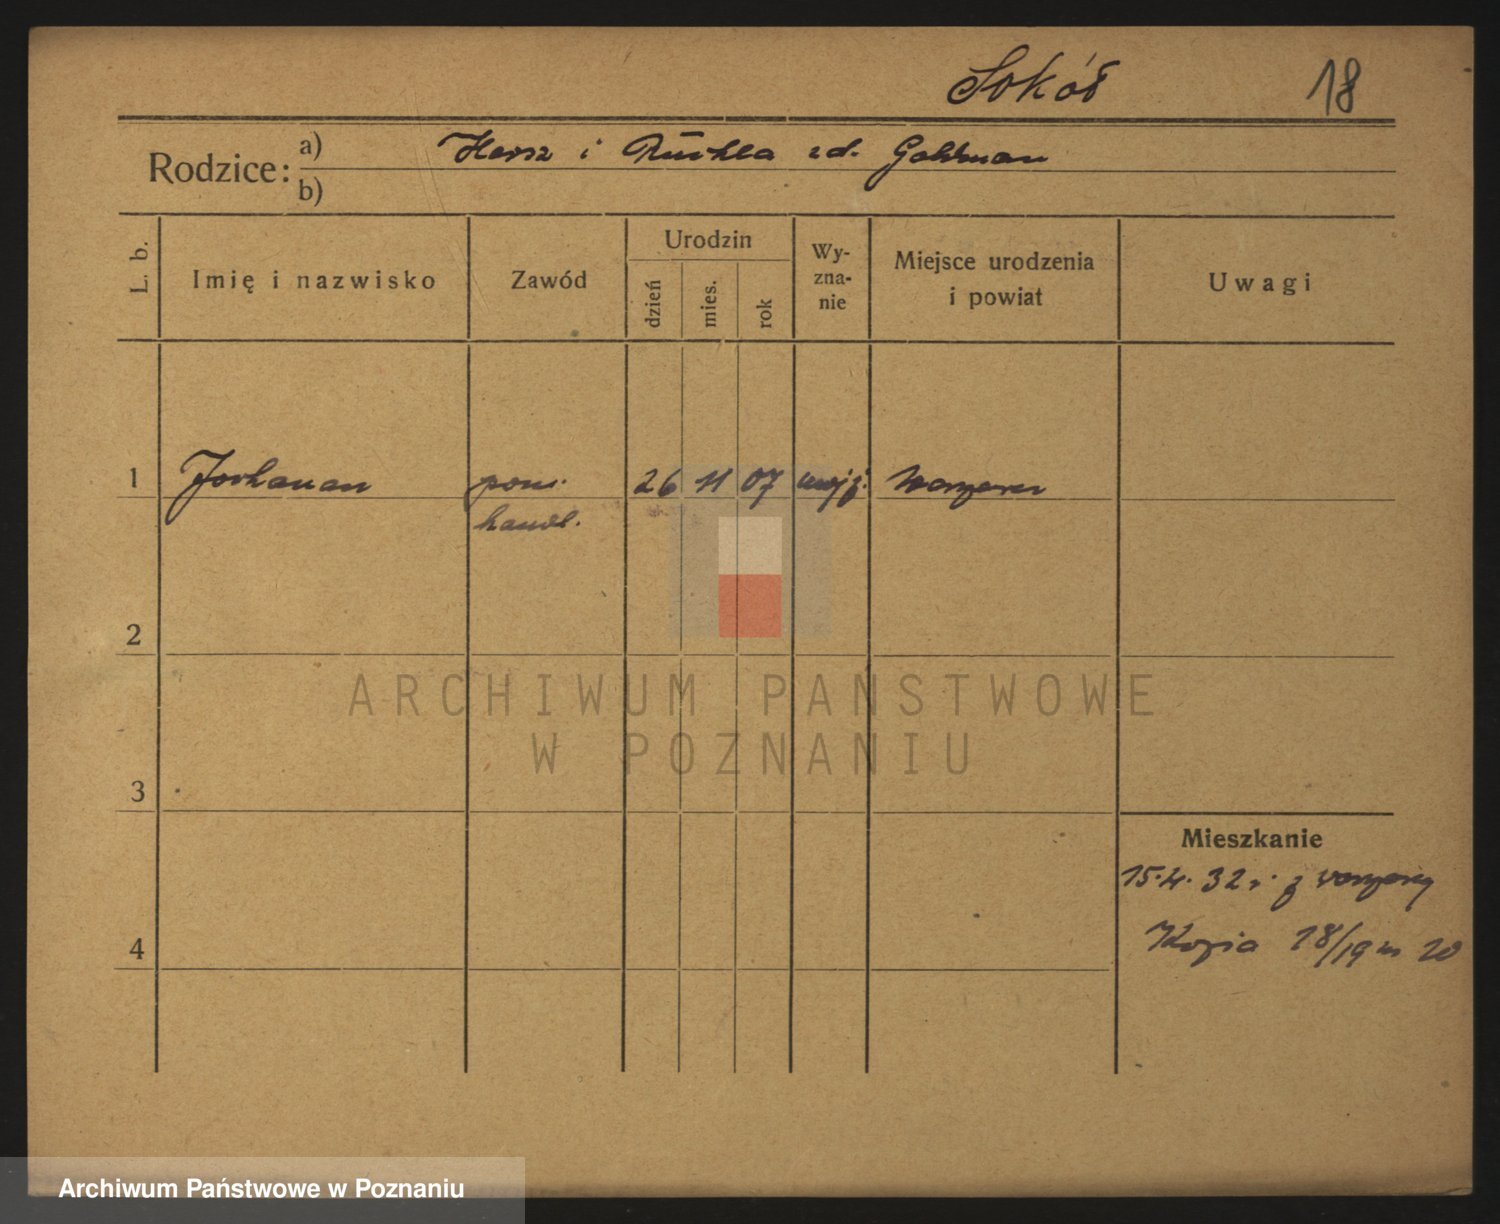 Sokół 18
Rodzice: a) Hersz i Ruchla zd. Goldman
b)
L. b. Imię i nazwisko Zawód Urodzin dzień mies. rok Wyznanie Miejsce urodzenia i powiat Uwagi
1 Jochanan pom. 26 11 07 mojż. Warszawa
handl.
2
ARCHIWUM PAŃSTWOWE
W POZNANIU
3
Mieszkanie
15.4.32 r. z Warszawy
4 Kozia 18/19 m 20
Archiwum Państwowe w Poznaniu